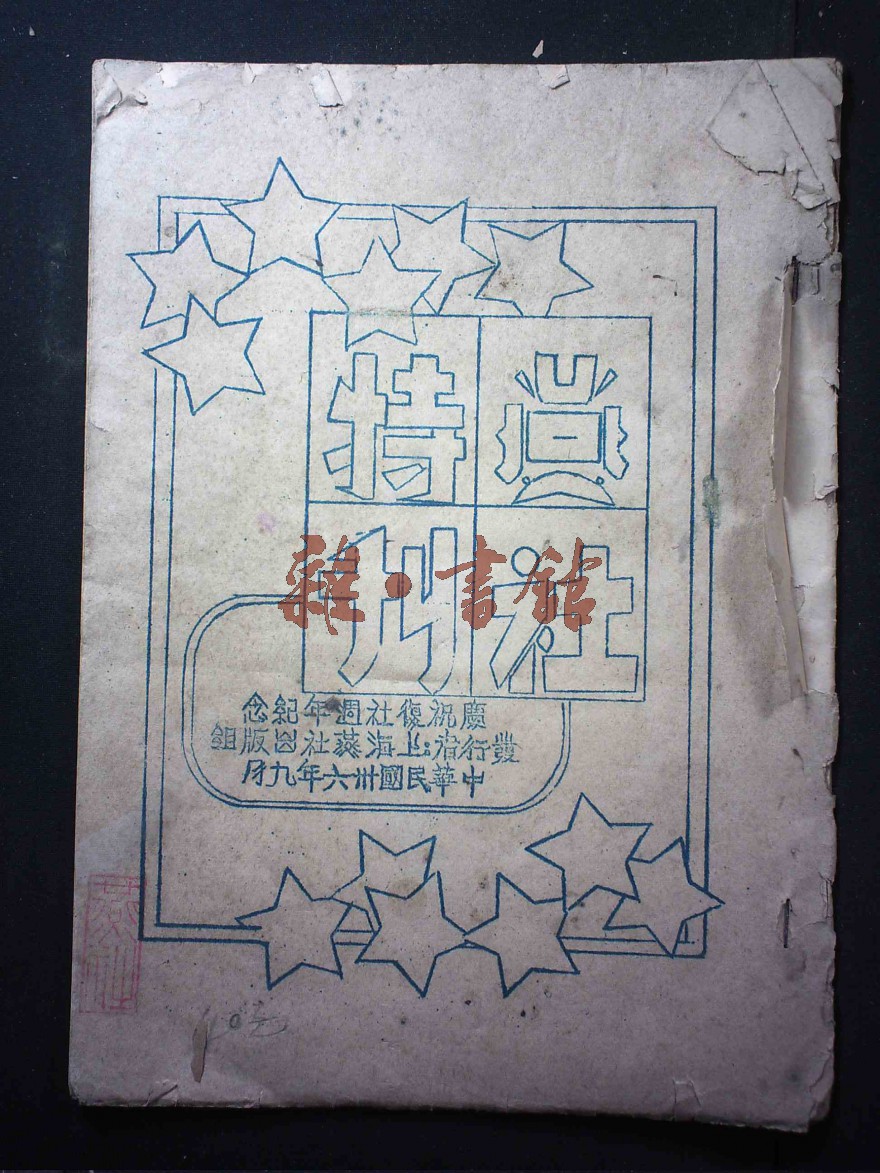 燕社
特刊
雜·書館
慶祝復社週年紀念
發行者:上海燕社出版組
中華民國卅六年九月